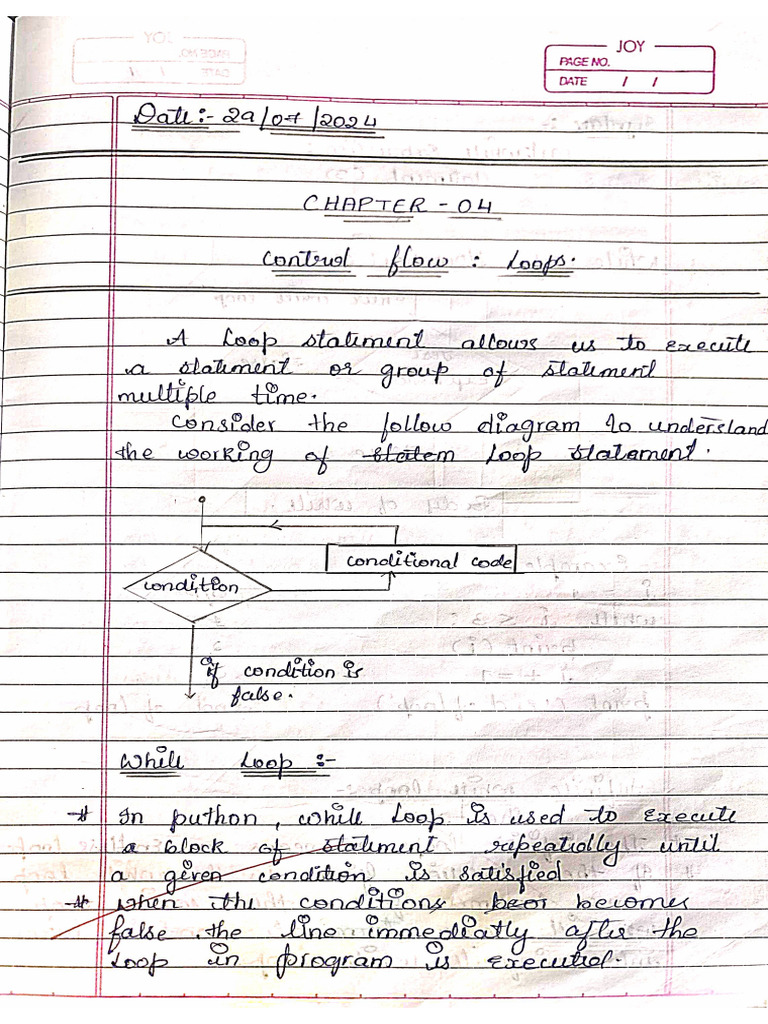 JOY
PAGE NO.
DATE / /
Date:- 29/07/2024
CHAPTER - 04
Control flow : Loops.
A Loop statement allows us to execute
a statement or group of statement
multiple time.
Consider the follow diagram to understand
the working of statem Loop statement.
conditional code
condition
if condition is
false.
While Loop :-
# In puthon, while Loop is used to execute
a block of statement repeatiolly until
a given condition is satisfied
# when the conditions becomes
false the line immediatly after the
Loop in program is executed.